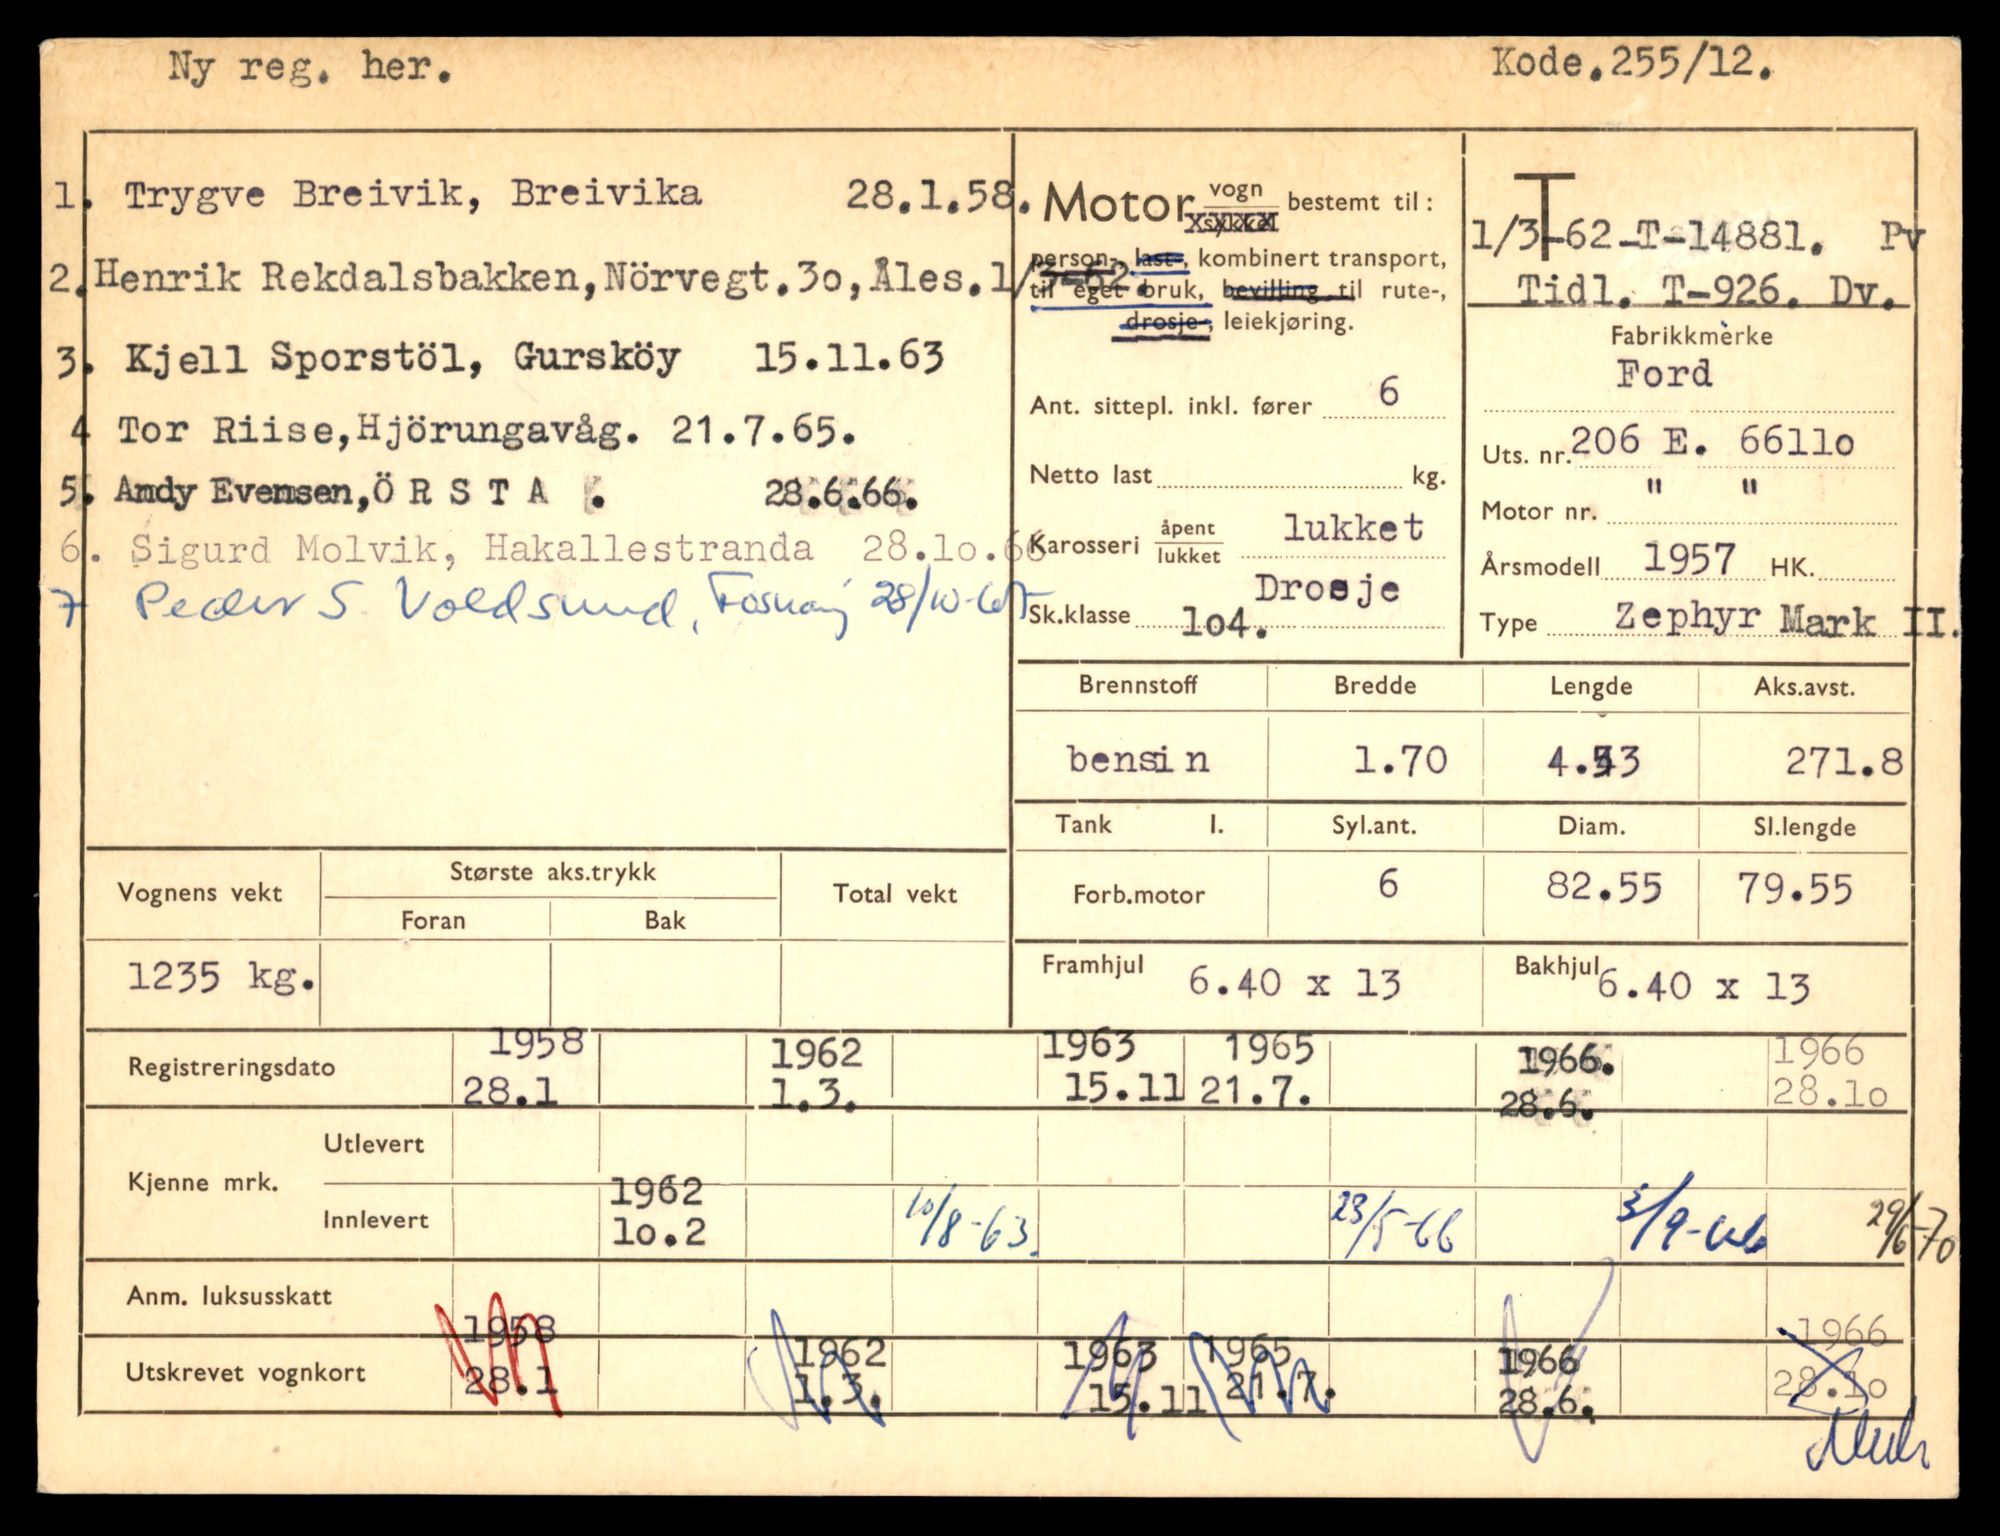 Ny reg. her.
Kode.255/12.
1. Trygve Breivik, Breivika 28.1.58.
2. Henrik Rekdalsbakken, Nörvegt.3o, Åles. 1/3-62.
3. Kjell Sporstöl, Gursköy 15.11.63
4 Tor Riise, Hjörungavåg. 21.7.65.
5. Andy Evensen, Ö R S T A . 28.6.66.
6. Sigurd Molvik, Hakallestranda 28.1o.66
7 Peder S. Voldsund,
Motor vogn sykkel bestemt til:
person-, last-, kombinert transport,
til eget bruk, bevilling til rute-,
drosje-, leiekjøring.
Ant. sittepl. inkl. fører 6
Netto last kg.
Karosseri åpent lukket lukket
Drosje
Sk.klasse 1o4.
T
1/3-62 T-14881. Pv
Tidl. T-926. Dv.
Fabrikkmerke
Ford
Uts. nr. 206 E. 6611o
Motor nr. " "
Årsmodell 1957 HK.
Type Zephyr Mark II.
Brennstoff Bredde Lengde Aks.avst.
bensin 1.70 271.8
Tank l. Syl.ant. Diam. Sl.lengde
Forb.motor 6 82.55 79.55
Framhjul 6.40 x 13 Bakhjul 6.40 x 13
Vognens vekt Største aks.trykk Total vekt
Foran Bak
1235 kg.
Registreringsdato 1958 1962 1963 1965 1966. 1966
28.1 1.3. 15.11 21.7. 28.6. 28.1o
Kjenne mrk. Utlevert
Innlevert 1962 10/8-63. 23/5-66 5/9-66 29/6-70
1o.2
Anm. luksusskatt
Utskrevet vognkort 1958 1962 1963 1965 1966 1966
28.1 1.3. 15.11 21.7. 28.6. 28.1o